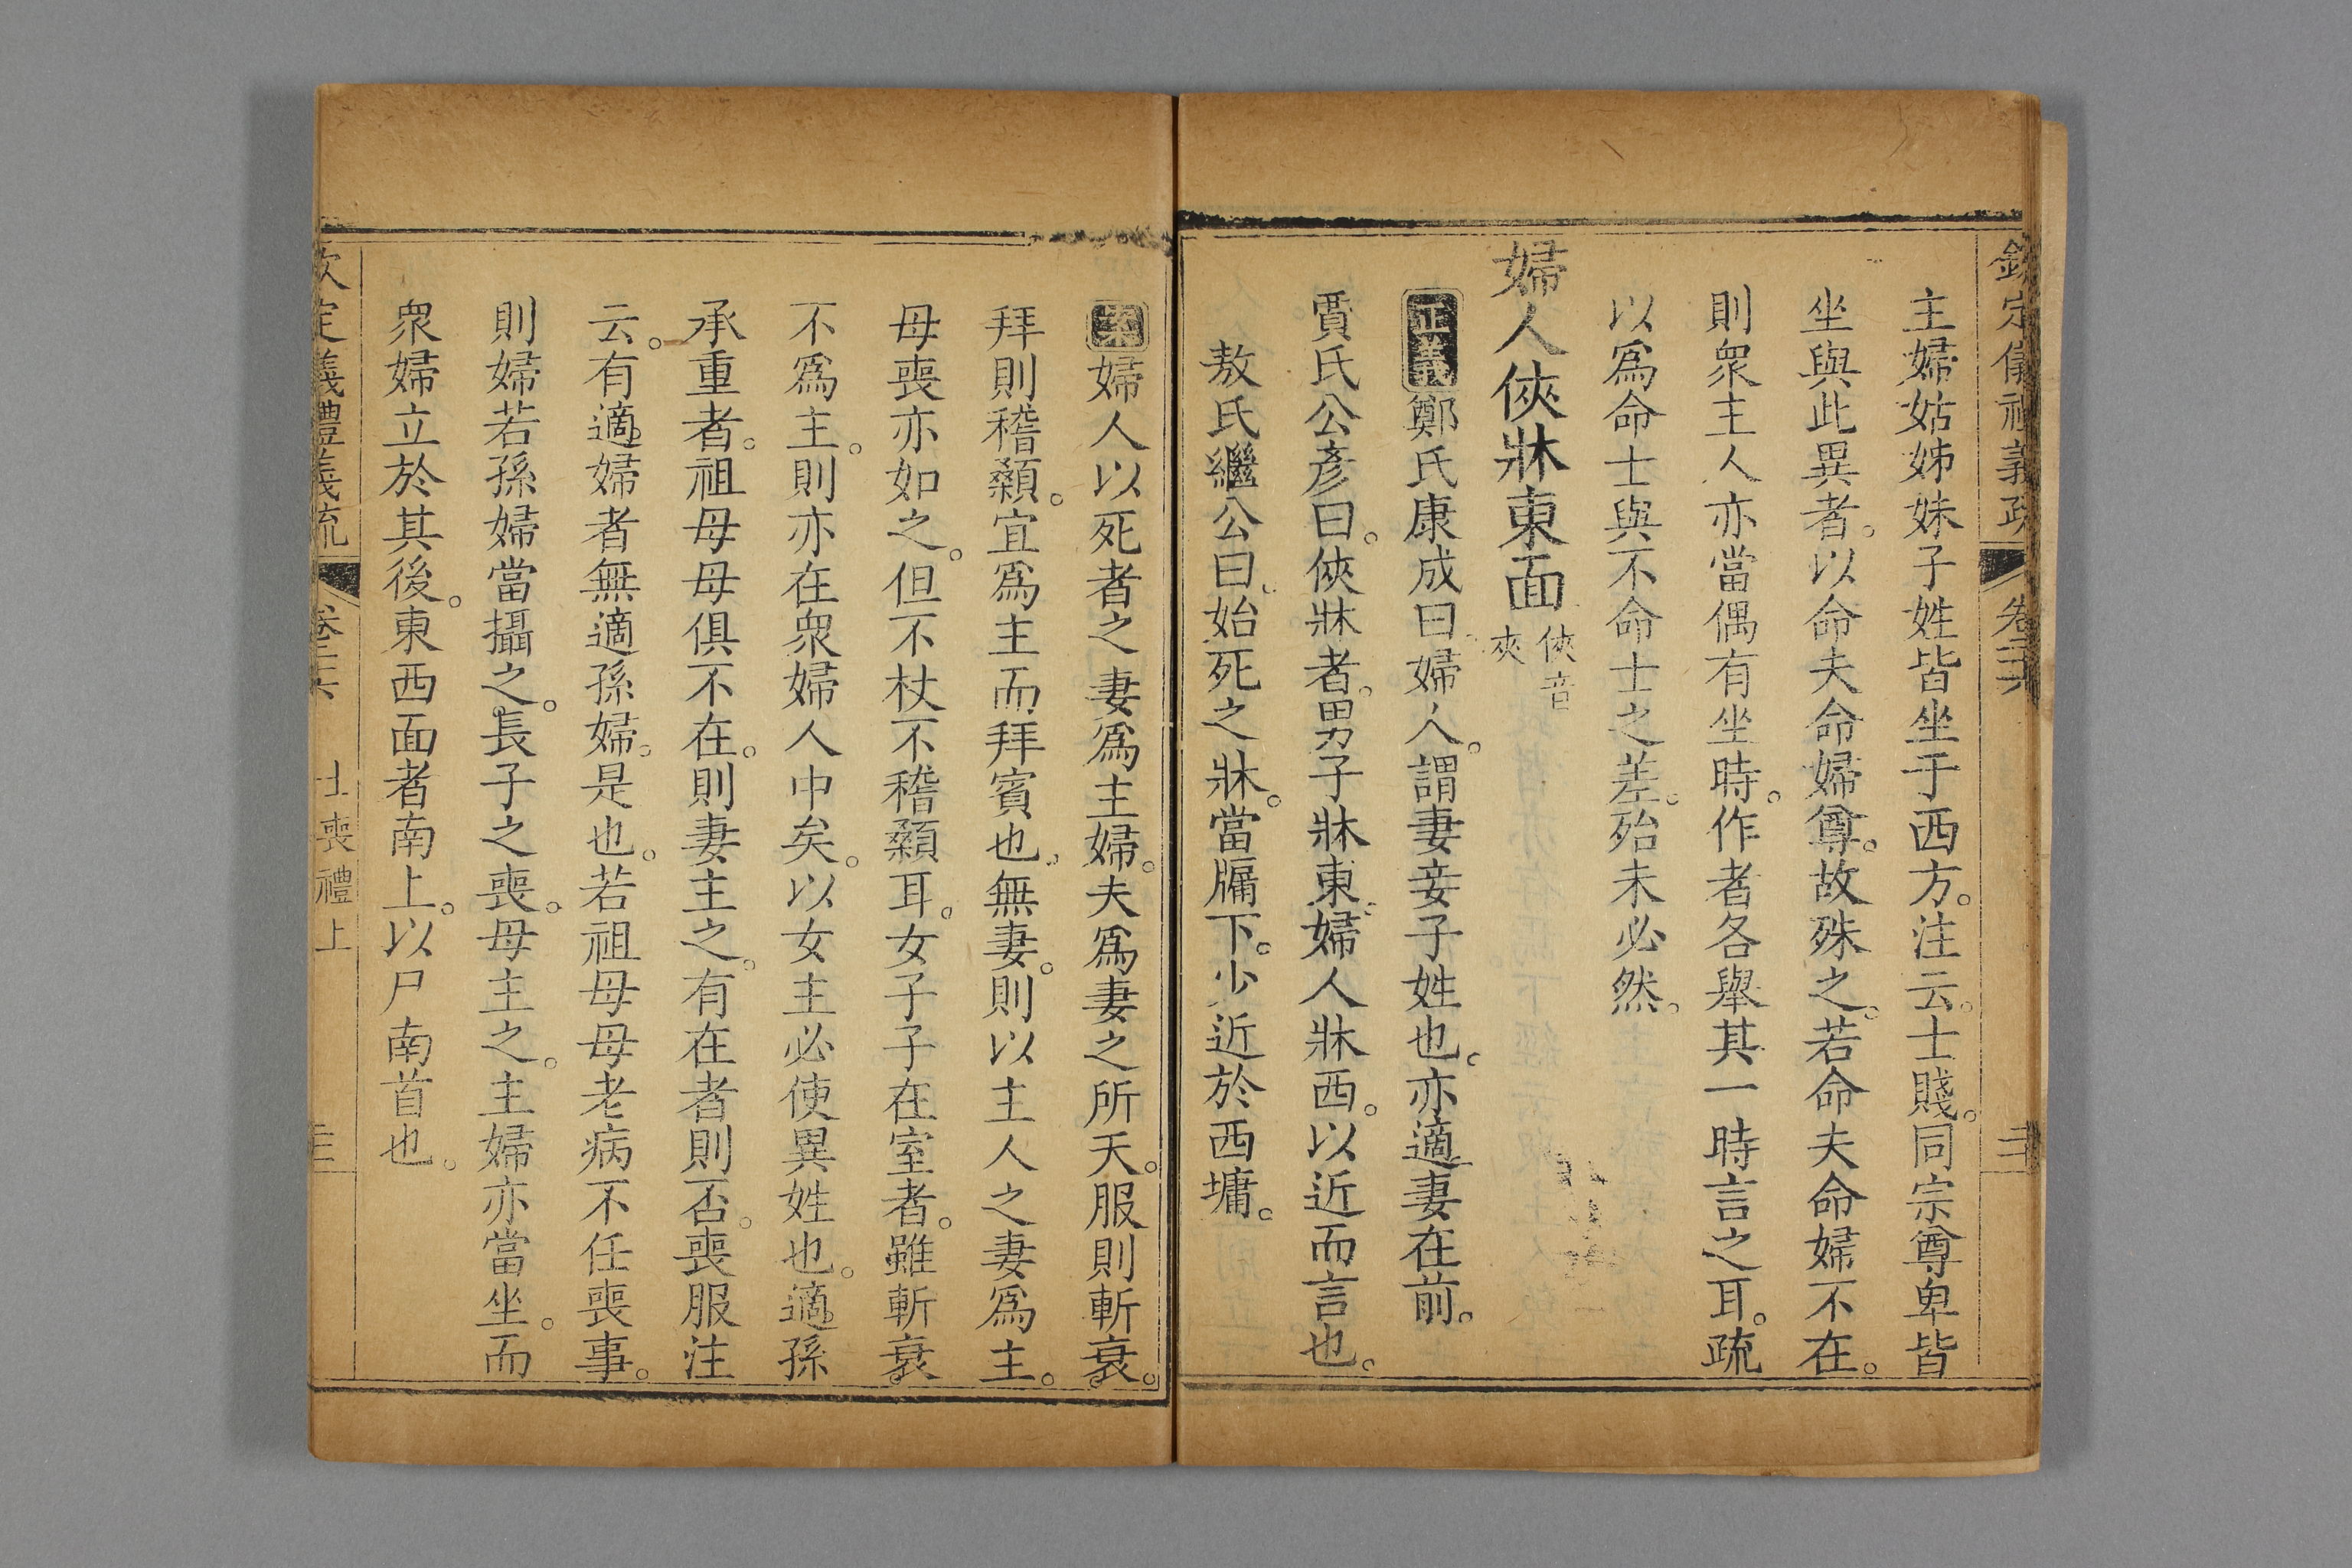 欽定儀禮義疏 卷二十六
主婦姑姊妹子姓皆坐于西方。注云。士賤。同宗尊卑皆
坐與此異者。以命夫命婦尊。故殊之。若命夫命婦不在。
則衆主人亦當偶有坐時。作者各舉其一時言之耳。疏
以爲命士與不命士之差。殆未必然。
婦人俠牀東面 俠音夾
正義鄭氏康成曰。婦人。謂妻妾子姓也。亦適妻在前。
賈氏公彥曰。俠牀者。男子牀東。婦人牀西。以近而言也。
敖氏繼公曰。始死之牀。當牖下。少近於西墉。
案婦人以死者之妻爲主婦。夫爲妻之所天。服則斬衰。
拜則稽顙。宜爲主而拜賓也。無妻。則以主人之妻爲主。
母喪亦如之。但不杖不稽顙耳。女子子在室者。雖斬衰。
不爲主。則亦在衆婦人中矣。以女主必使異姓也。適孫
承重者。祖母母俱不在。則妻主之。有在者則否。喪服注
云。有適婦者無適孫婦。是也。若祖母母老病不任喪事。
則婦若孫婦當攝之。長子之喪。母主之。主婦亦當坐。而
衆婦立於其後。東西面者南上。以尸南首也。
欽定義禮義疏 卷二十六 士喪禮上